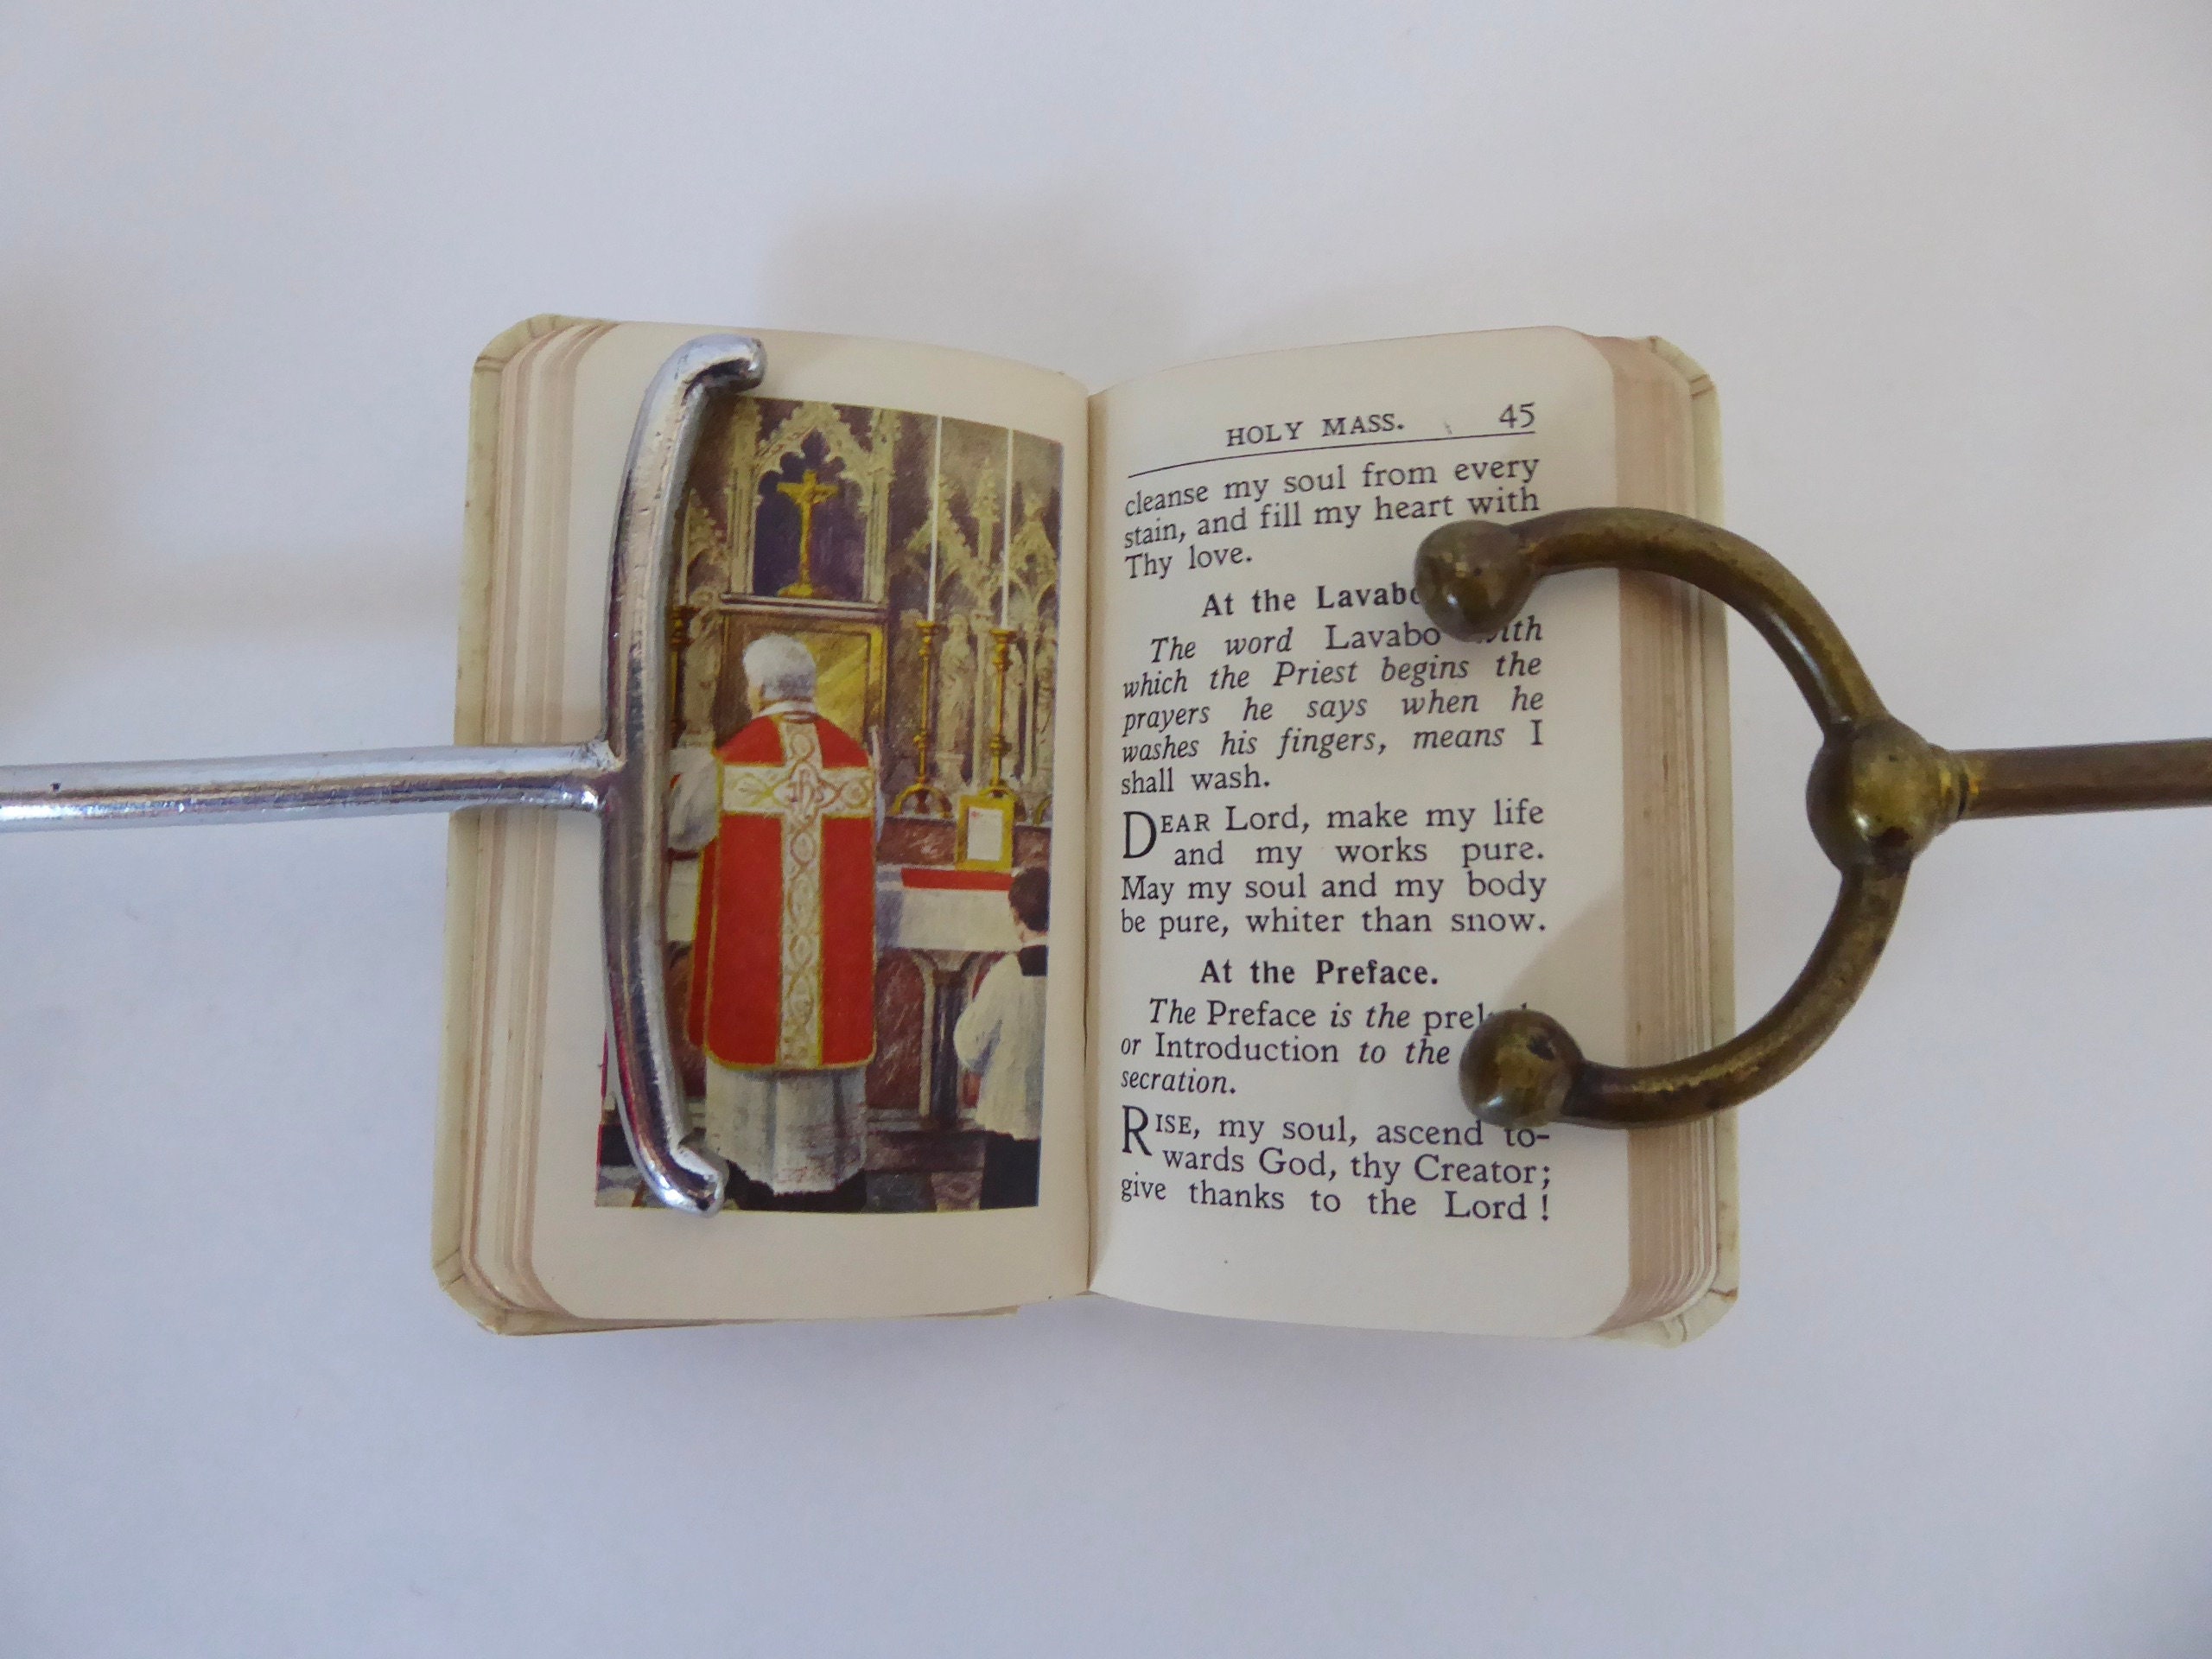 HOLY MASS. 45
cleanse my soul from every
stain, and fill my heart with
Thy love.
At the
The word Lavabo
which the Priest begins the
prayers he says when he
washes his fingers, means I
shall wash.
DEAR Lord, make my life
and my works pure.
May my soul and my body
be pure, whiter than snow.
At the Preface.
The Preface is the
or Introduction to the
secration.
RISE, my soul, ascend to-
wards God, thy Creator;
give thanks to the Lord !
IHS